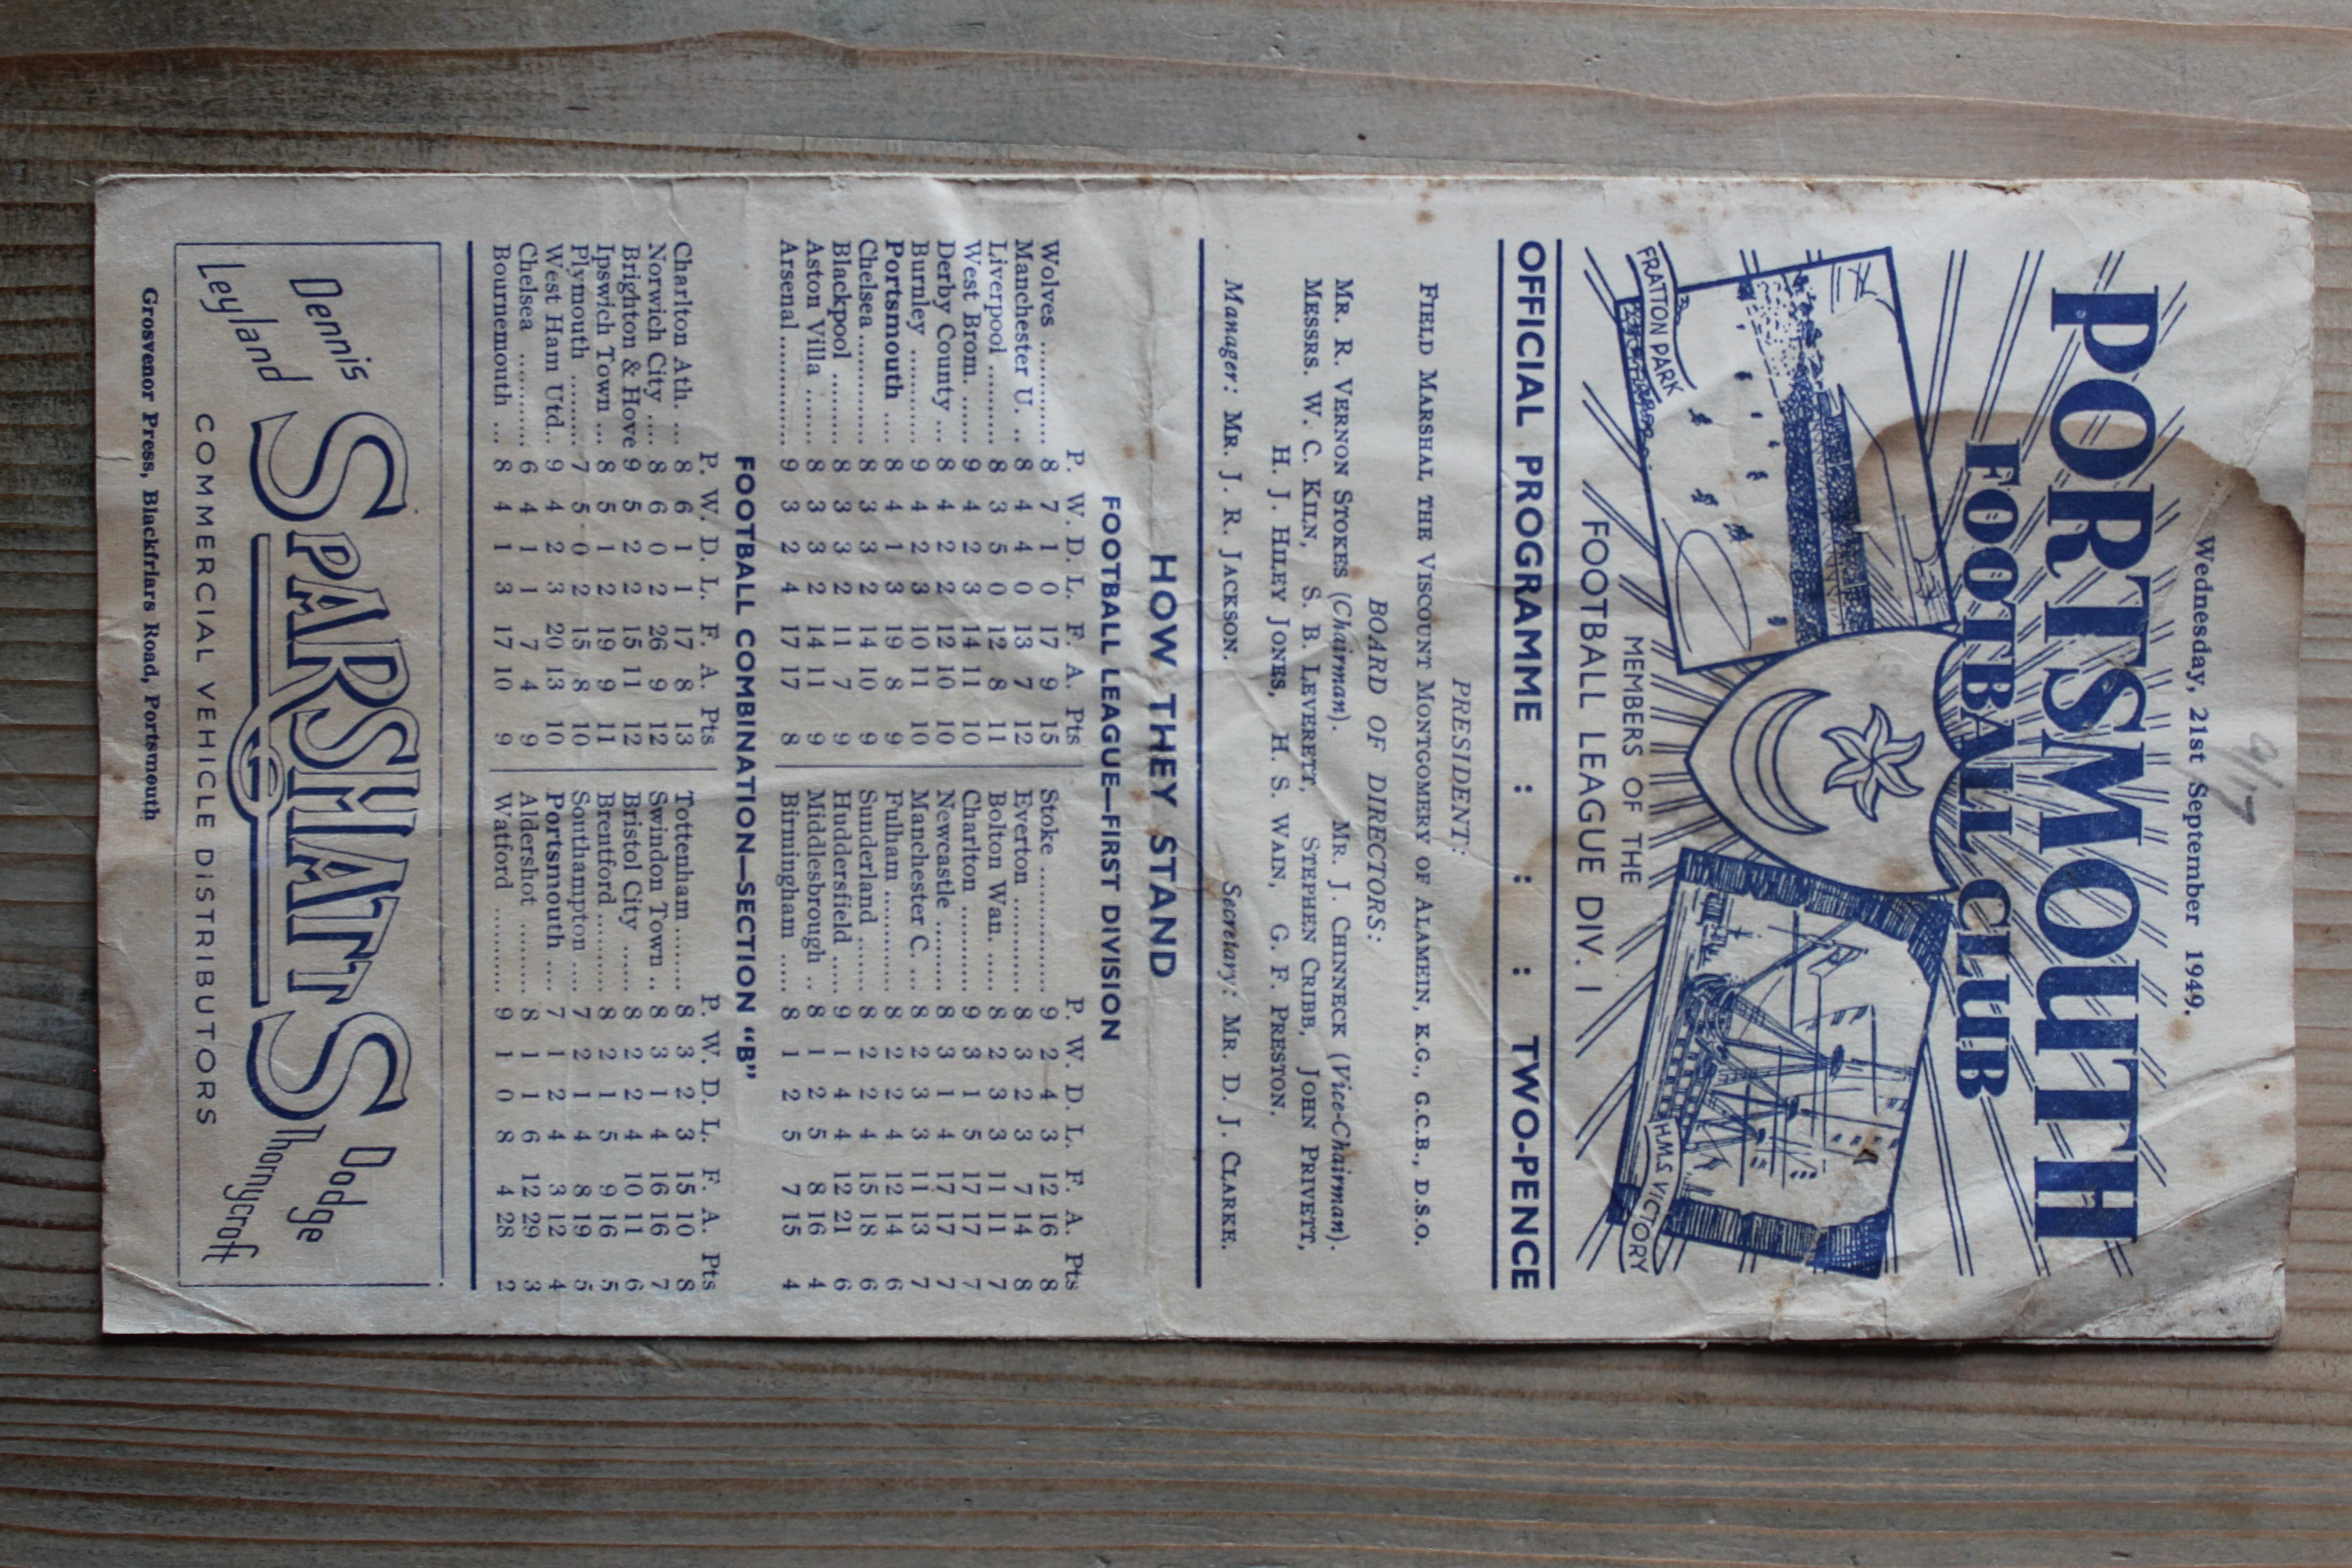 9/17
Wednesday, 21st September 1949.
PORTSMOUTH
FOOTBALL CLUB
FRATTON PARK
H.M.S. VICTORY
MEMBERS OF THE
FOOTBALL LEAGUE DIV. 1
OFFICIAL PROGRAMME : : : TWO-PENCE
PRESIDENT:
FIELD MARSHAL THE VISCOUNT MONTGOMERY OF ALAMEIN, K.G., G.C.B., D.S.O.
BOARD OF DIRECTORS:
MR. R. VERNON STOKES (Chairman). MR. J. CHINNECK (Vice-Chairman).
MESSRS. W. C. KILN, S. B. LEVERETT, STEPHEN CRIBB, JOHN PRIVETT,
H. J. HILEY JONES, H. S. WAIN, G. F. PRESTON.
Manager: MR. J. R. JACKSON. Secretary: MR. D. J. CLARKE.
HOW THEY STAND
FOOTBALL LEAGUE—FIRST DIVISION
P. W. D. L. F. A. Pts
Wolves ............ 8 7 1 0 17 9 15
Manchester U. .. 8 4 4 0 13 7 12
Liverpool ......... 8 3 5 0 12 8 11
West Brom. ...... 9 4 2 3 14 11 10
Derby County ... 8 4 2 2 12 10 10
Burnley .......... 9 4 2 3 10 11 10
Portsmouth .... 8 4 1 3 19 8 9
Chelsea ............ 8 3 3 2 14 10 9
Blackpool ........ 8 3 3 2 11 7 9
Aston Villa ....... 8 3 3 2 14 11 9
Arsenal ............ 9 3 2 4 17 17 8
P. W. D. L. F. A. Pts
Stoke .............. 9 2 4 3 12 16 8
Everton ........... 8 3 2 3 7 14 8
Bolton Wan. ..... 8 2 3 3 11 11 7
Charlton .......... 9 3 1 5 17 17 7
Newcastle ......... 8 3 1 4 17 17 7
Manchester C. ... 8 2 3 3 11 13 7
Fulham ............ 8 2 2 4 12 14 6
Sunderland ....... 8 2 2 4 15 18 6
Huddersfield ..... 9 1 4 4 12 21 6
Middlesbrough .. 8 1 2 5 8 16 4
Birmingham ..... 8 1 2 5 7 15 4
FOOTBALL COMBINATION—SECTION "B"
P. W. D. L. F. A. Pts
Charlton Ath. ... 8 6 1 1 17 8 13
Norwich City .... 8 6 0 2 26 9 12
Brighton & Hove 9 5 2 2 15 11 12
Ipswich Town ... 8 5 1 2 19 9 11
Plymouth ........ 7 5 0 2 15 8 10
West Ham Utd.. 9 4 2 3 20 13 10
Chelsea ........... 6 4 1 1 7 4 9
Bournemouth ... 8 4 1 3 17 10 9
P. W. D. L. F. A. Pts
Tottenham ........ 8 3 2 3 15 10 8
Swindon Town .. 8 3 1 4 16 16 7
Bristol City ...... 8 2 2 4 10 11 6
Brentford .......... 8 2 1 5 9 16 5
Southampton .... 7 2 1 4 8 19 5
Portsmouth .... 7 1 2 4 3 12 4
Aldershot ......... 8 1 1 6 12 29 3
Watford ........... 9 1 0 8 4 28 2
Dennis
Leyland
SPARSHATTS
Dodge
Thornycroft
COMMERCIAL VEHICLE DISTRIBUTORS
Grosvenor Press, Blackfriars Road, Portsmouth